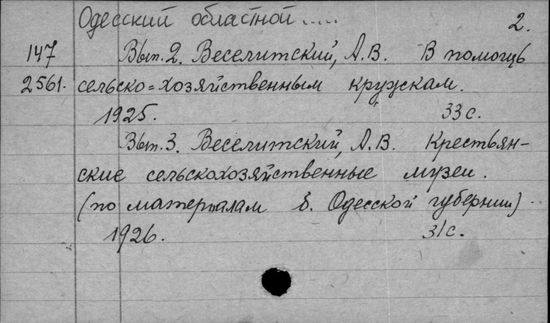 Одесский областной..... 2.
147 Вып. 2. Веселитский, А.В. В помощь
2561. сельско-хозяйственным кружкам.
1925. 33 с.
Вып. 3. Веселитский, А.В. Крестьян-
ские сельскохозяйственные музеи.
(по материалам б. Одесской губернии).
1926. 31 с.